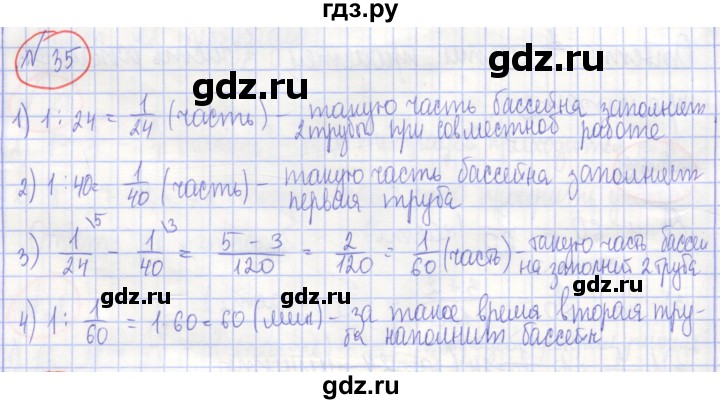 гдз.ру
№ 35
gdz.ru gdz.ru
1) 1 : 24 = 1/24 (часть) – такую часть бассейна заполняет
2 трубы при совместной работе
gdz.ru gdz.ru
2) 1 : 40 = 1/40 (часть) – такую часть бассейна заполняет
первая труба
3) 1/24 \5 – 1/40 \3 = 5 – 3/120 = 2/120 = 1/60 (часть) такую часть бассей
на заполнит 2 труба
gdz.ru gdz.ru
4) 1 : 1/60 = 1 · 60 = 60 (мин) – за такое время вторая тру-
ба наполнит бассейн
gdz.ru